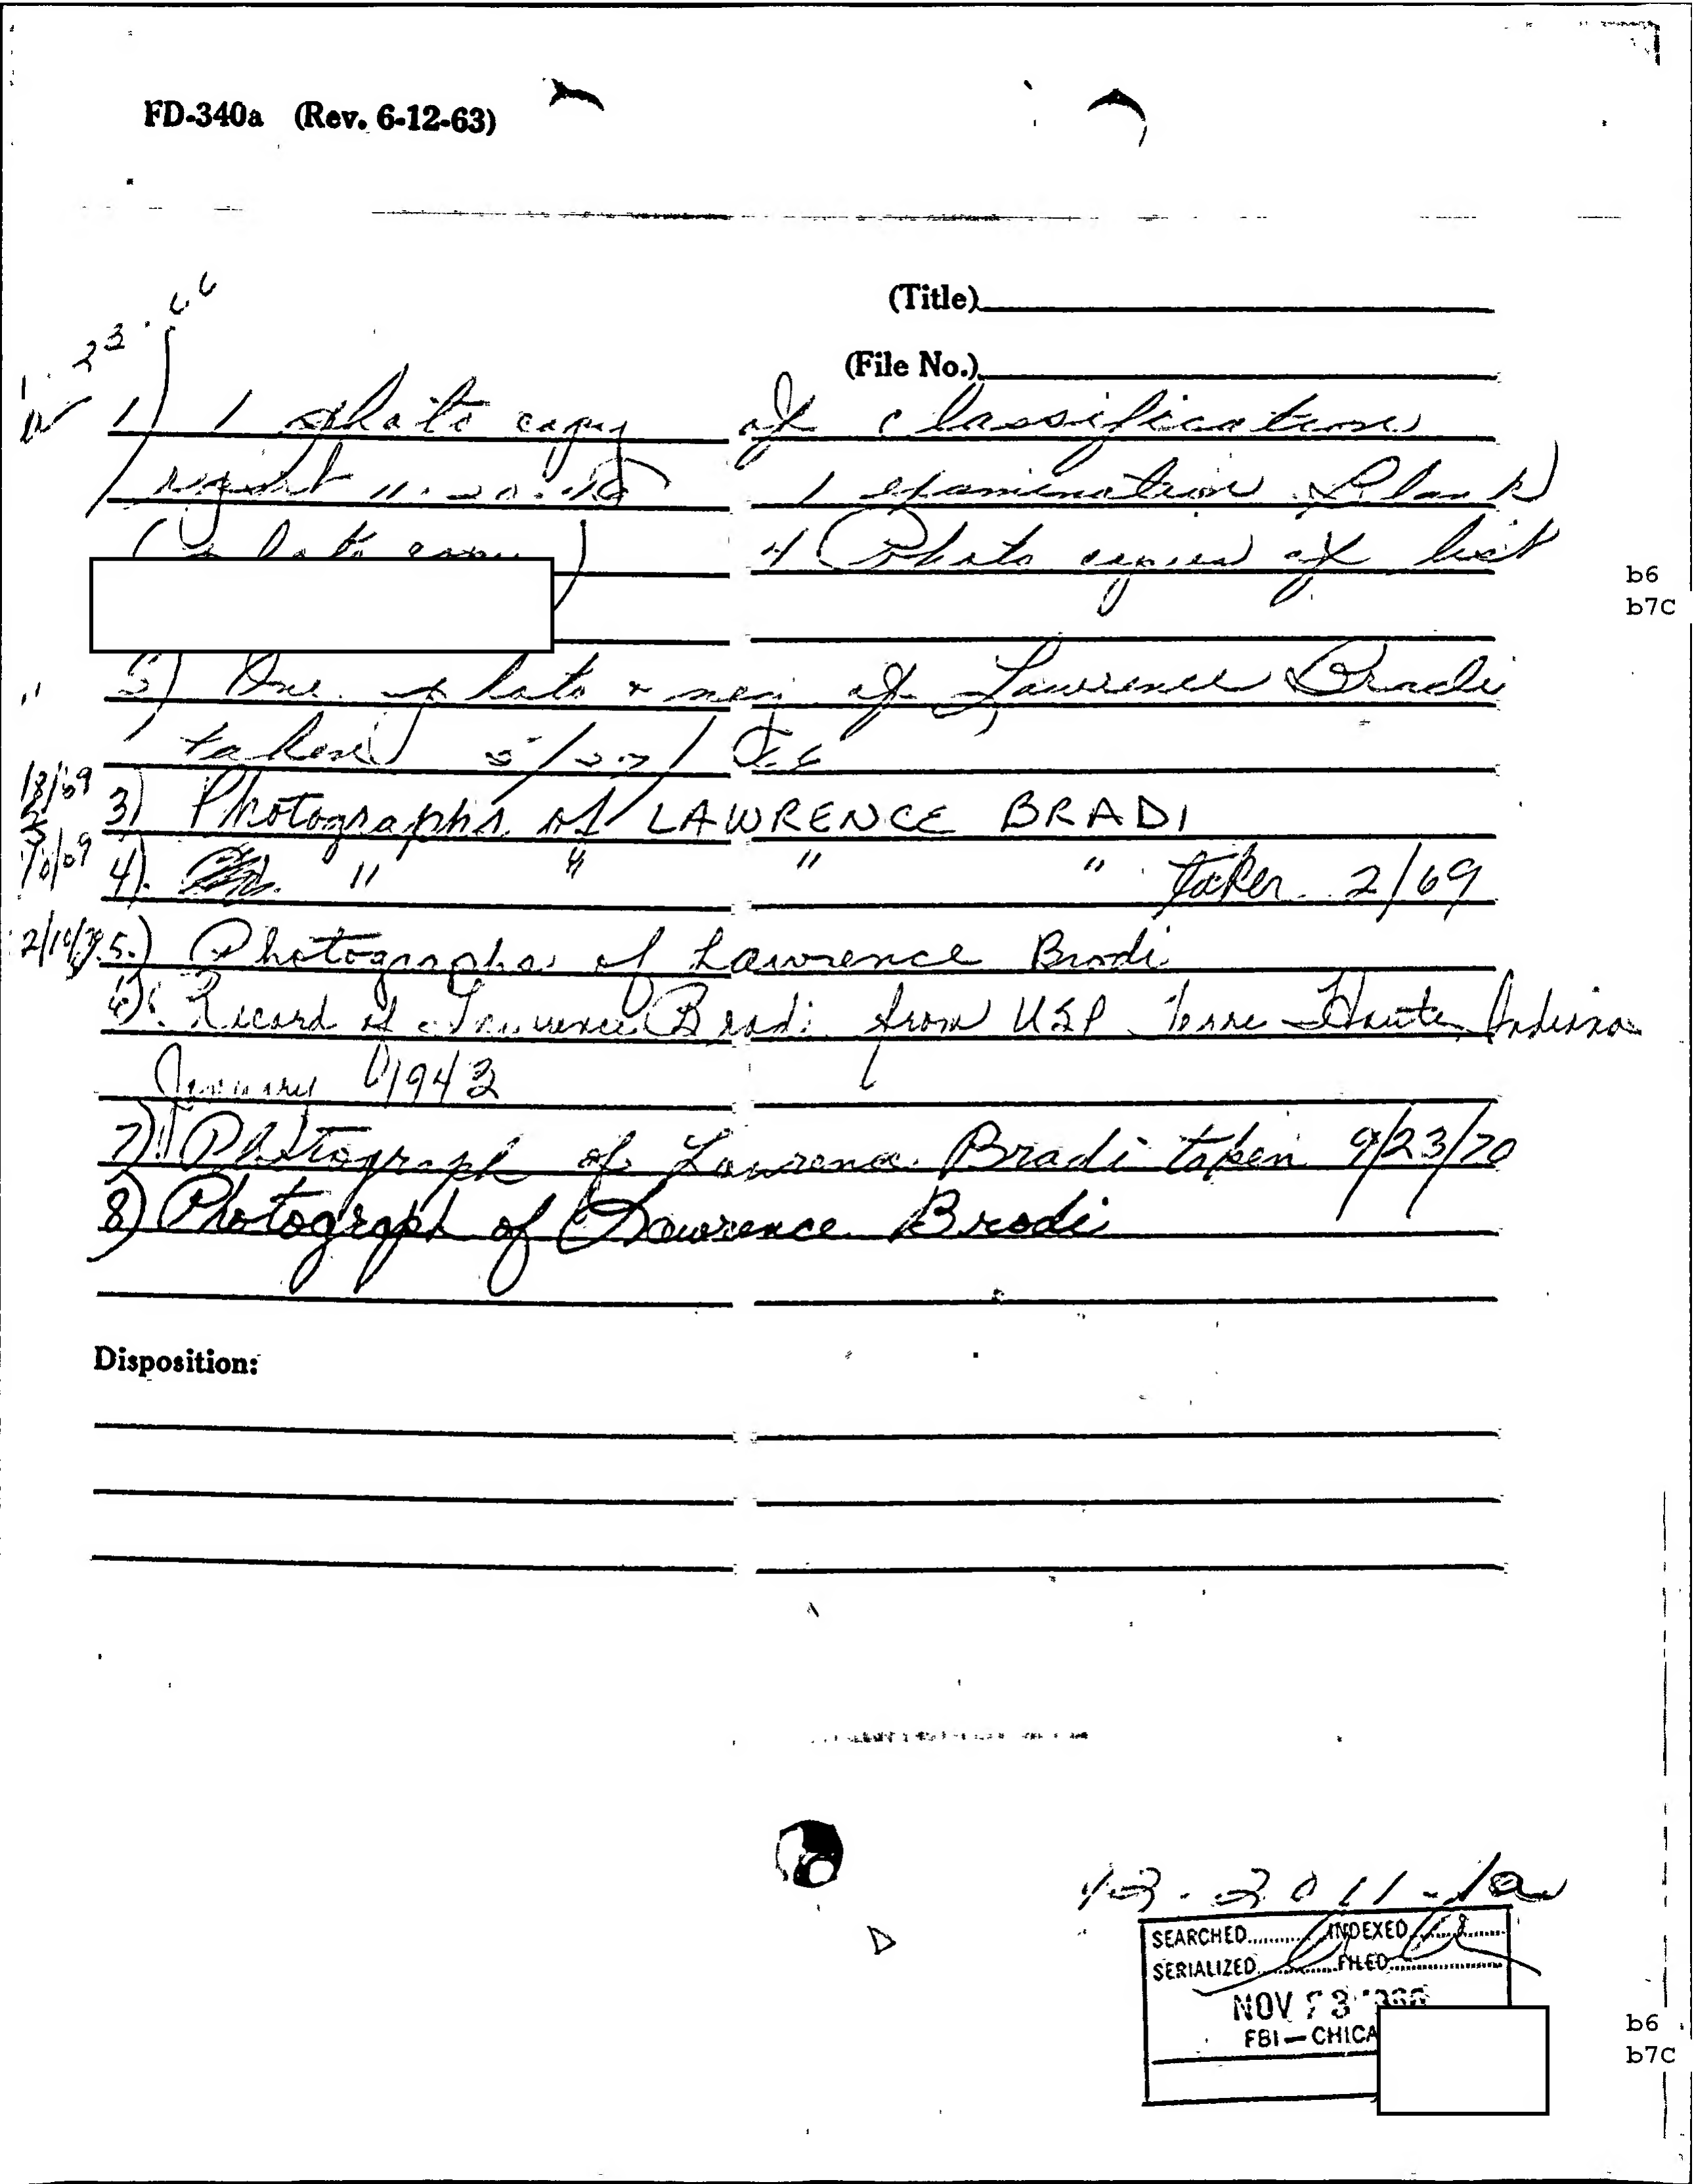 FD-340a (Rev. 6-12-63)
(Title)
(File No.)
1) 1 photo copy of classification
11-20- 1 examination blank
(photo copy) 4 Photo copies of list
b6
b7C
One photo & neg of Lawrence Bradi
taken 5/27/
3) Photographs of LAWRENCE BRADI
4). " " " " taken 2/69
5.) Photographs of Lawrence Bradi
6) Record of Lawrence Bradi from USP Terre Haute, Indiana
January 1943
7) Photograph of Lawrence Bradi taken 9/23/70
8) Photograph of Lawrence Bradi
Disposition:
SEARCHED INDEXED
SERIALIZED FILED
NOV
FBI — CHICA
b6
b7C